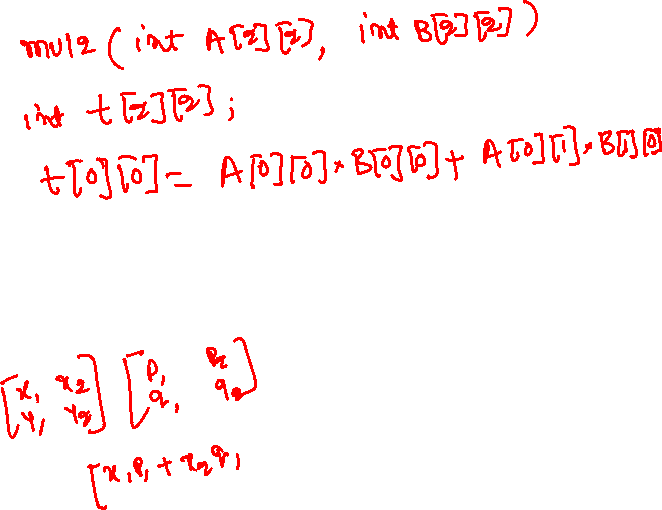 mul2 ( int A[2][2], int B[2][2] )
int t[2][2];
t[0][0] = A[0][0] * B[0][0] + A[0][1] * B[1][0]
[x1 x2 [p1 p2
y1 y2] q1 q2]
[x1p1 + x2q1